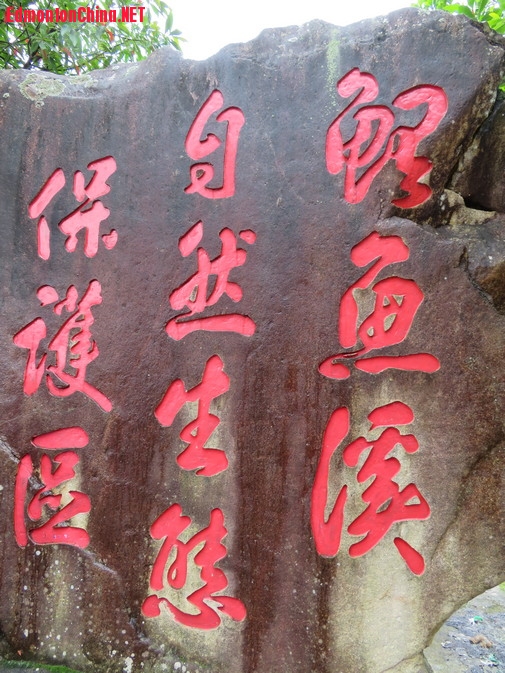 EdmontonChina.NET
鲤鱼溪
自然生态
保護區